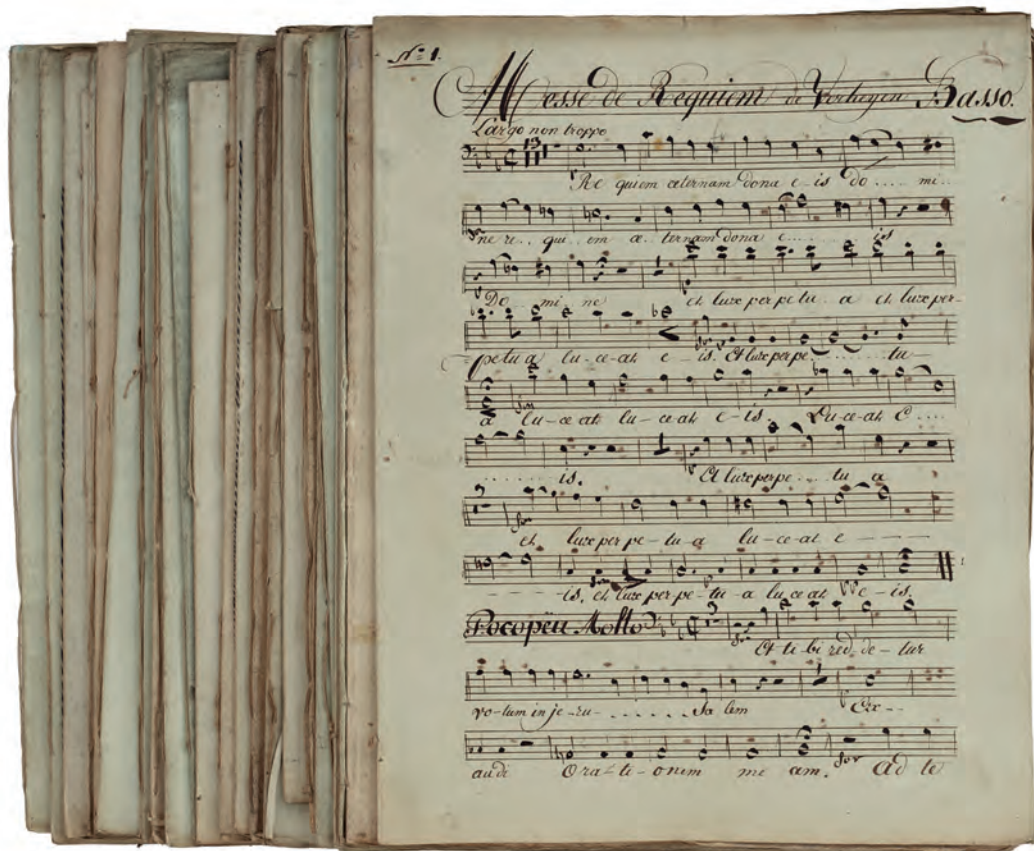 Nº 1.
Messe de Requiem de Verheyen Basso.
Largo non troppo
13
Re quiem æternam dona e-is do.... mi..
ne re.. qui.. em æ.. ternam dona e.......... is
Do... mi.. ne et lux perpetu.. a et lux per-
petu a lu-ce-at e-is. Et lux perpe......... tu-
a lu-ce at lu-ce-at e-is. Lu-ce-at e....
........ is. Et lux perpe.... tu a
3
et lux per pe-tu-a lu-ce-at e-----
-----is, et lux per-pe-tu-a lu ce at e-is.
Poco piu Molto
Et ti-bi red-de-tur
vo-tum in je-ru-...... sa lem Ex--
audi Ora-ti-onem me am. Ad te